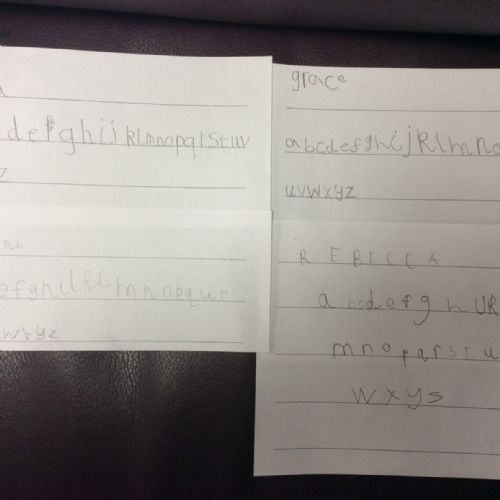 defghijklmnopqrstuv
z
grace
abcdefghijklmno
uvwxyz
efghi
mnopqur
wxyz
REBICCA
abodefghUR
mnopqrstu
wxys